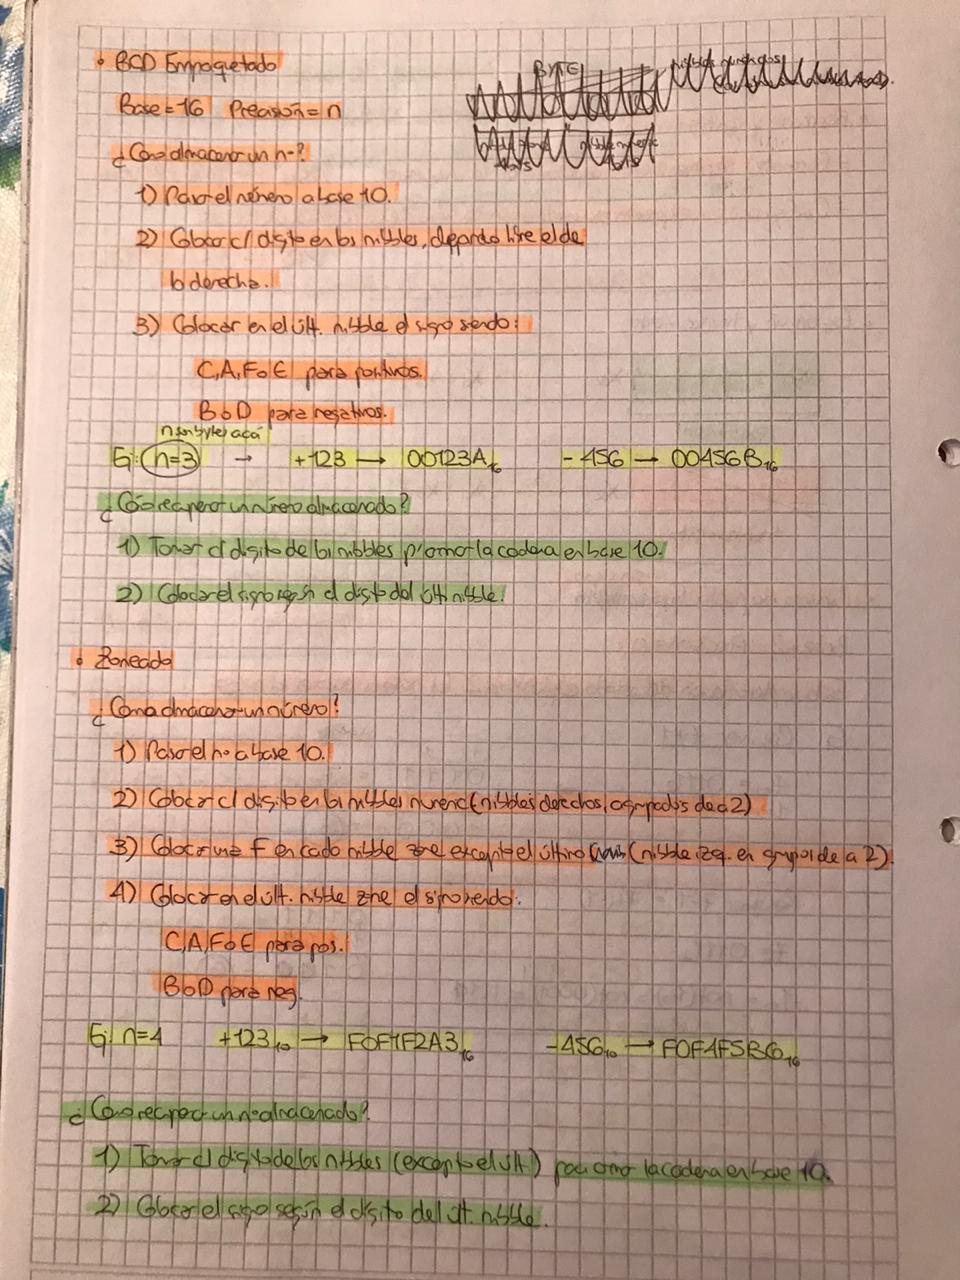 • BCD Empaquetado
BYTE
Base = 16 Precisión = n
¿Como almacenar un n°?
1) Paso el número a base 10.
2) Colocar c/ dígito en los nibbles, dejando libre el de
la derecha.
3) Colocar en el últ. nibble el signo siendo:
C, A, F o E para positivos.
B o D para negativos.
n son bytes acá
Ej: n=3 → +123 → 00123A16 -456 → 00456B16
¿Cómo recuperar un número almacenado?
1) Tomar c/ dígito de los nibbles p/ armar la cadena en base 10.
2) Colocar el signo según el dígito del últ. nibble.
• Zoneado
¿Como almacenar un número?
1) Paso el n° a base 10.
2) Colocar c/ dígito en los nibbles numéric (nibbles derechos, agrupados de a 2)
3) Colocar una F en cada nibble zone excepto el último (nibble izq. en grupos de a 2).
4) Colocar en el últ. nibble zone el signo siendo:
C, A, F o E para pos.
B o D para neg.
Ej: n=4 +12310 → F0F1F2A316 -45610 → F0F4F5B616
¿Como recuperar un n° almacenado?
1) Tomar c/ dígito de los nibbles (excepto el últ.) para armar la cadena en base 10.
2) Colocar el signo según el dígito del últ. nibble.